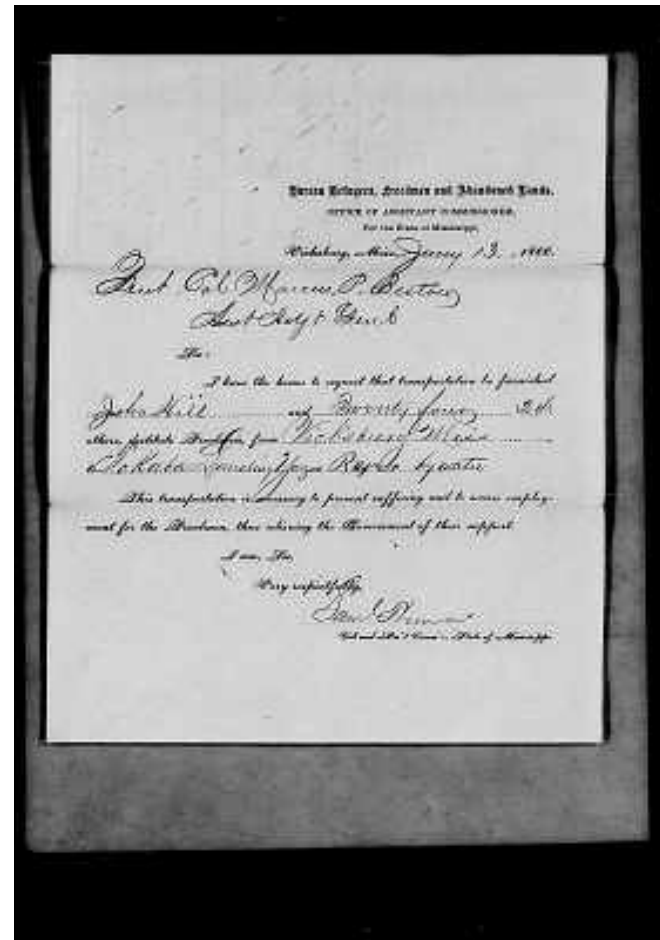 Bureau Refugees, Freedmen and Abandoned Lands,
OFFICE OF ASSISTANT COMMISSIONER,
For the State of Mississippi,
Vicksburg, Miss. Jany 13, 1866.
Lieut Col Marcus P. Bestow
Asst Adjt Genl
Sir:
I have the honor to request that transportation be furnished
John Hill and Twenty four 24
others, destitute Freedmen from Vicksburg Miss
to Landing Yazoo River
This transportation is necessary to prevent suffering and to secure employ-
ment for the Freedmen, thus relieving the Government of their support.
I am, Sir,
Very respectfully,
Saml Thomas
Col. and Ass't Comm'r State of Mississippi